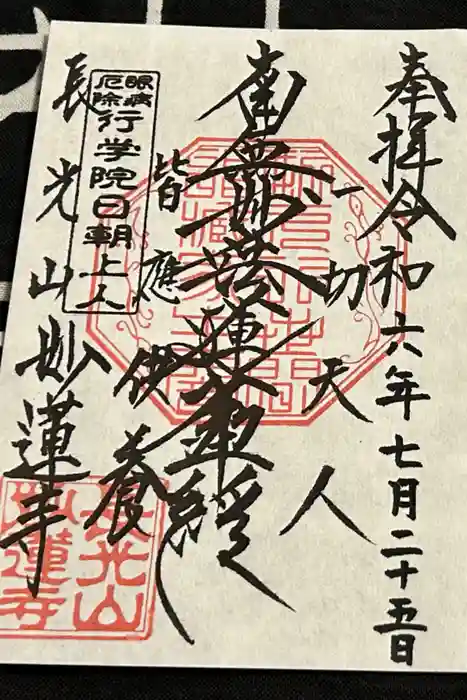 奉拝令和六年七月二十五日
一切天人
南無妙法蓮華経
皆應供養
眼病
厄除
行学院日朝上人
長光山妙蓮寺
長光山
妙蓮寺